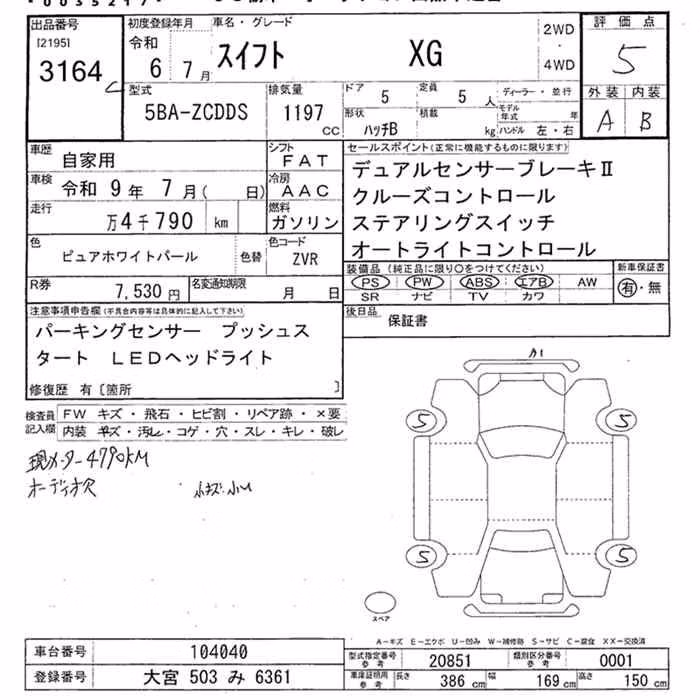 出品番号
[2195]
3164
初度登録年月
令和
6 7月
車名・グレード
スイフト XG
2WD
・
4WD
評価点
5
外装 内装
A B
型式
5BA-ZCDDS
排気量
1197
CC
ドア
5
定員
5人
形状
ハッチB
積載
kg
ディーラー・並行
モデル年式 年
ハンドル 左・右
車歴
自家用
シフト
FAT
車検
令和 9年 7月( 日)
冷房
AAC
走行
万4千790 km
燃料
ガソリン
色
ピュアホワイトパール
色替
色コード
ZVR
R券
7,530円
名変通知期限
月 日
セールスポイント(正常に機能するものに限ります)
デュアルセンサーブレーキⅡ
クルーズコントロール
ステアリングスイッチ
オートライトコントロール
装備品(純正品に限り○をつけてください)
PS PW ABS エアB AW
SR ナビ TV カワ
新車保証書
有・無
後日品
保証書
注意事項申告欄(不具合内容等は具体的に記入して下さい)
パーキングセンサー プッシュス
タート LEDヘッドライト
修復歴 有[箇所 ]
検査員記入欄
FW キズ・飛石・ヒビ割・リペア跡・×要
内装 キズ・汚レ・コゲ・穴・スレ・キレ・破レ
現メーター4790KM
オーディオ穴
内キズ・小ム
カ1
5 5
5 5
スペア
A-キズ E-エクボ U-凹み W-補修跡 S-サビ C-腐食 XX-交換済
車台番号 104040
登録番号 大宮 503 み 6361
型式指定番号 参考 20851
類別区分番号 参考 0001
車庫証明用 参考 長さ 386 cm 幅 169 cm 高さ 150 cm